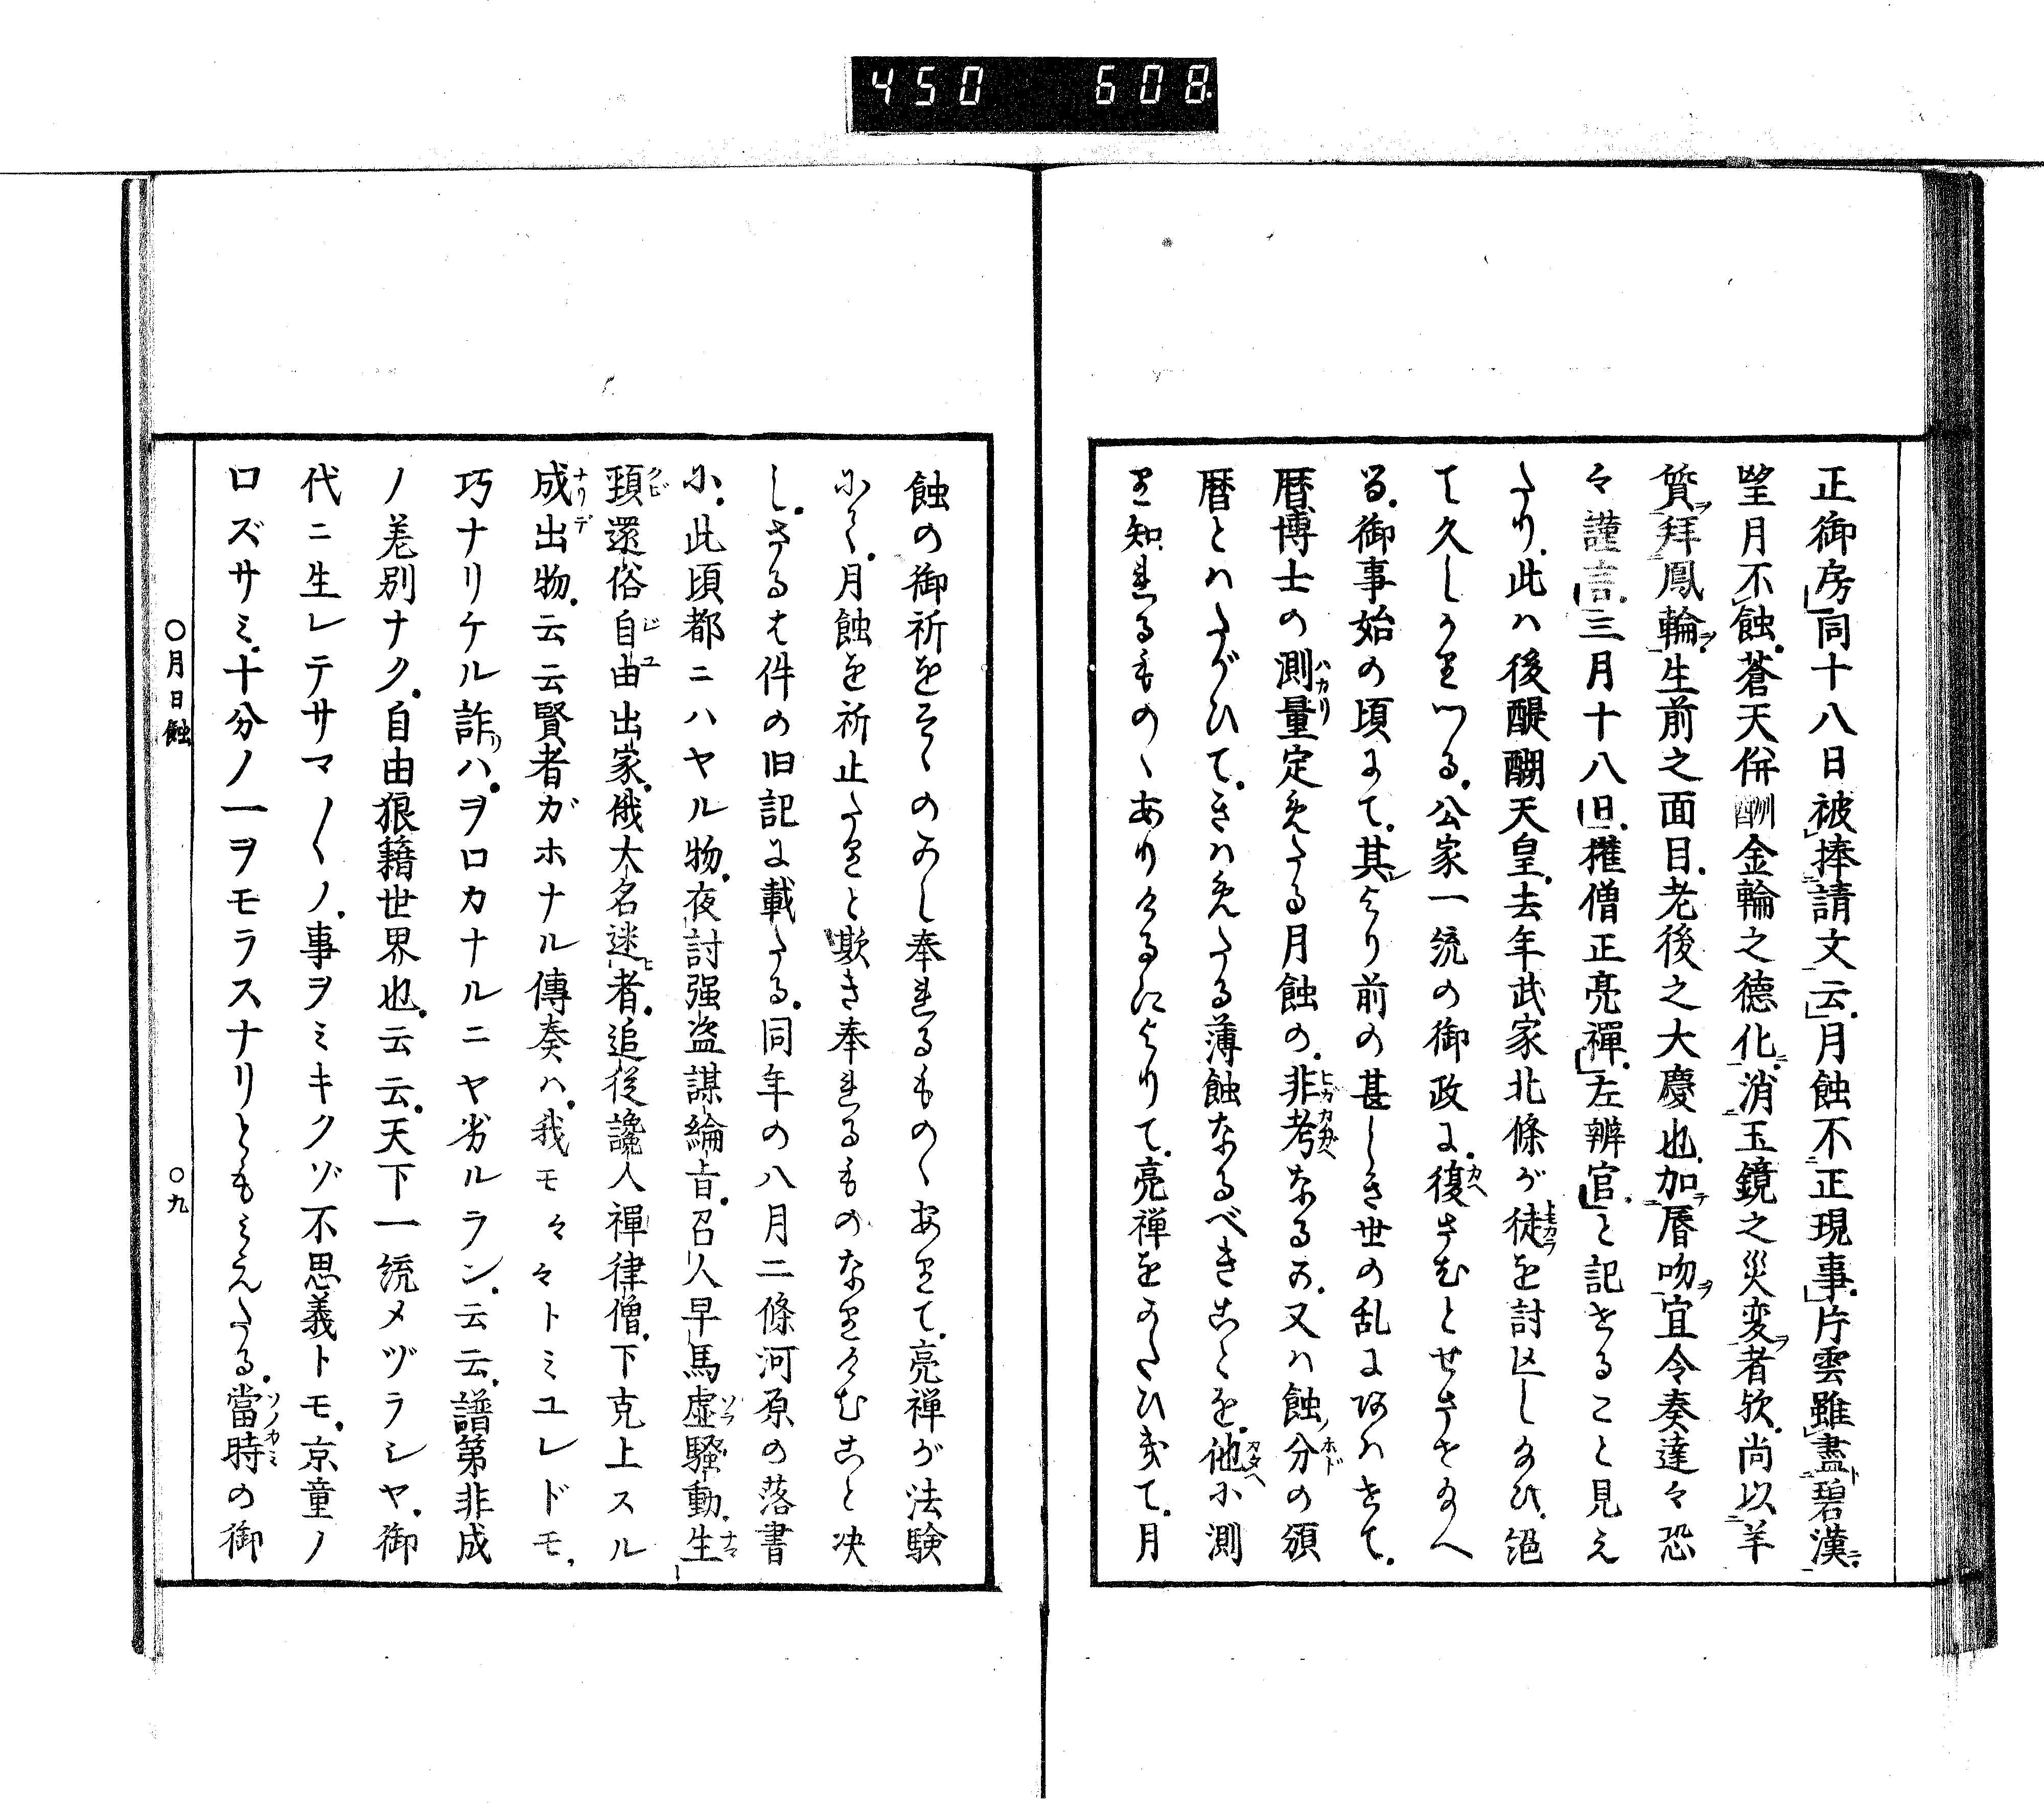 450 608
正御房同十八日被捧請文云月蝕不正現事片雲雖盡碧漢
望月不蝕蒼天併酬金輪之德化消玉鏡之災変者欤尚以羊
質拜鳳輪生前之面目老後之大慶也加唇吻宜令奏達々恐
々謹言三月十八日權僧正亮禪左辨官と記せること見え
たり此ハ後醍醐天皇去年武家北條が徒を討亡しめひ絕
て久しかりつる公家一統の御政に復さむとせさせ給へ
る御事始の頃にて其より前の甚しき世の乱にあハせて
暦博士の測量定めたる月蝕の非考なるか又ハ蝕分の頒
暦とハたがひてきハめたる薄蝕なるべきことを他に測
り知れるものゝありけるによりて亮禅をかたひきて月
蝕の御祈をそゝのかし奉れるものゝありて亮禅が法験
にて月蝕を祈止たりと欺き奉れるものなりけむこと决
しさるは件の旧記に載たる同年の八月二條河原の落書
に此頃都ニハヤル物夜討强盗謀綸旨召人早馬虚騒動生
頸還俗自由出家俄大名迷者追從讒人禪律僧下克上スル
成出物云云賢者ガホナル傳奏ハ我モ々々トミユレドモ
巧ナリケル詐ハヲロカナルニヤ劣ルラン云云譜第非成
ノ差別ナク自由狼籍世界也云云天下一統メヅラシヤ御
代ニ生レテサマ〱ノ事ヲミキクゾ不思義トモ京童ノ
口ズサミ十分ノ一ヲモラスナリともみえたる當時の御
○月日蝕 ○九